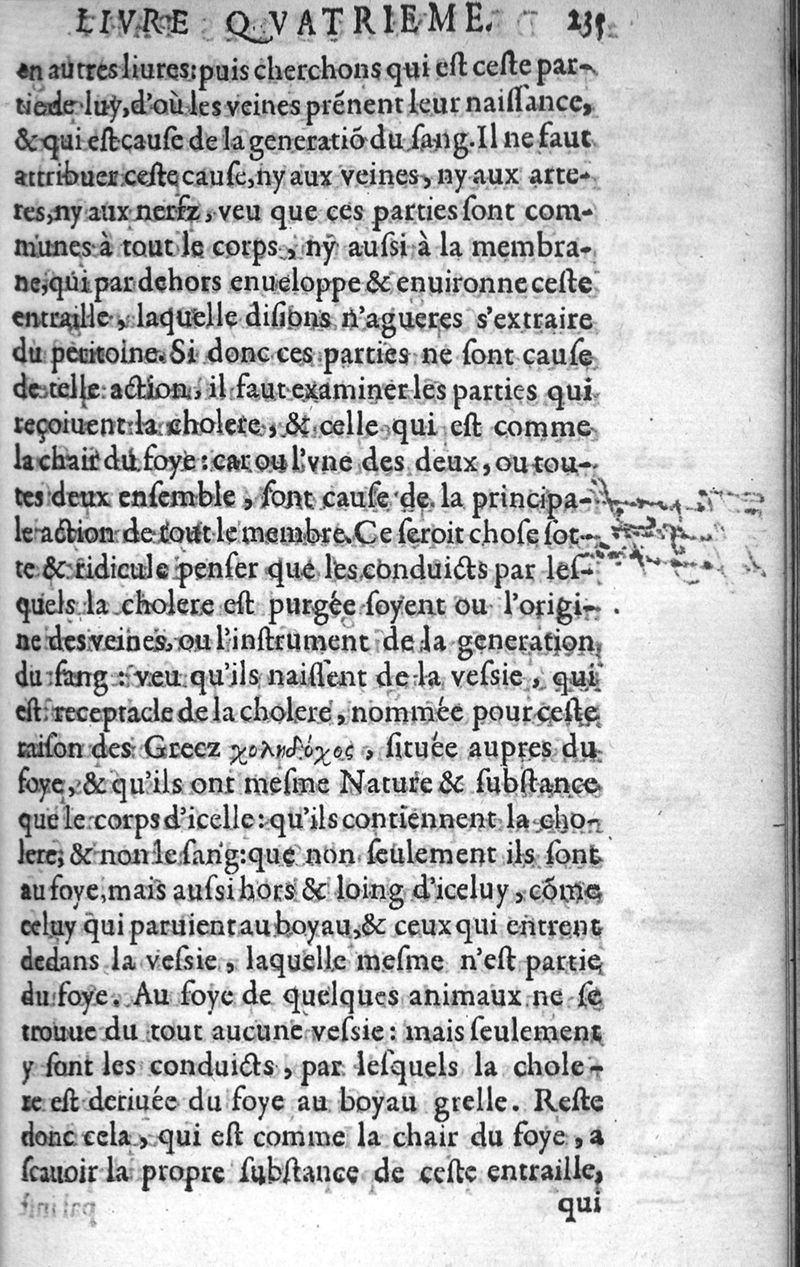 LIVRE QVATRIEME. 235
en autres liures: puis cherchons qui eſt ceſte par-
tie de luy, d'où les veines prénent leur naiſſance,
& qui eſt cauſe de la generatiõ du ſang. Il ne faut
attribuer ceſte cauſe, ny aux veines, ny aux arte-
res, ny aux nerfz, veu que ces parties ſont com-
munes à tout le corps, ny auſsi à la membra-
ne, qui par dehors enueloppe & enuironne ceſte
entraille, laquelle diſions n'agueres s'extraire
du peritoine. Si donc ces parties ne ſont cauſe
de telle action, il faut examiner les parties qui
reçoiuent la cholere, & celle qui eſt comme
la chair du foye: car ou l'vne des deux, ou tou-
tes deux enſemble, ſont cauſe de la principa-
le action de tout le membre. Ce ſeroit choſe ſot-
te & ridicule penſer que les conduicts par leſ-
quels la cholere eſt purgée ſoyent ou l'origi-
ne des veines, ou l'inſtrument de la generation
du ſang: veu qu'ils naiſſent de la veſsie, qui
eſt receptacle de la cholere, nommée pour ceſte
raiſon des Greez χοληδόχος, ſituée aupres du
foye, & qu'ils ont meſme Nature & ſubſtance
que le corps d'icelle: qu'ils contiennent la cho-
lere, & non le ſang: que non ſeulement ils ſont
au foye, mais auſsi hors & loing d'iceluy, cõme
celuy qui paruient au boyau, & ceux qui entrent
dedans la veſsie, laquelle meſme n'eſt partie
du foye. Au foye de quelques animaux ne ſe
trouue du tout aucune veſsie: mais ſeulement
y ſont les conduicts, par leſquels la chole-
re eſt deriuée du foye au boyau grelle. Reſte
donc cela, qui eſt comme la chair du foye, a
ſcauoir la propre ſubſtance de ceſte entraille,
qui